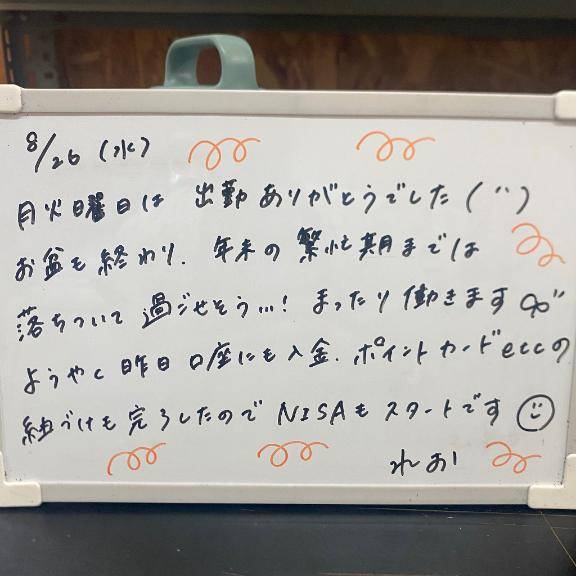 8/26 (水)
月火曜日は 出勤ありがとうでした (¨)
お盆も終わり、年末の繁忙期までは
落ちついて過ごせそう…! まったり働きます
ようやく昨日口座にも入金、ポイントカードetcの
紐づけも完了したので NISAもスタートです
れお